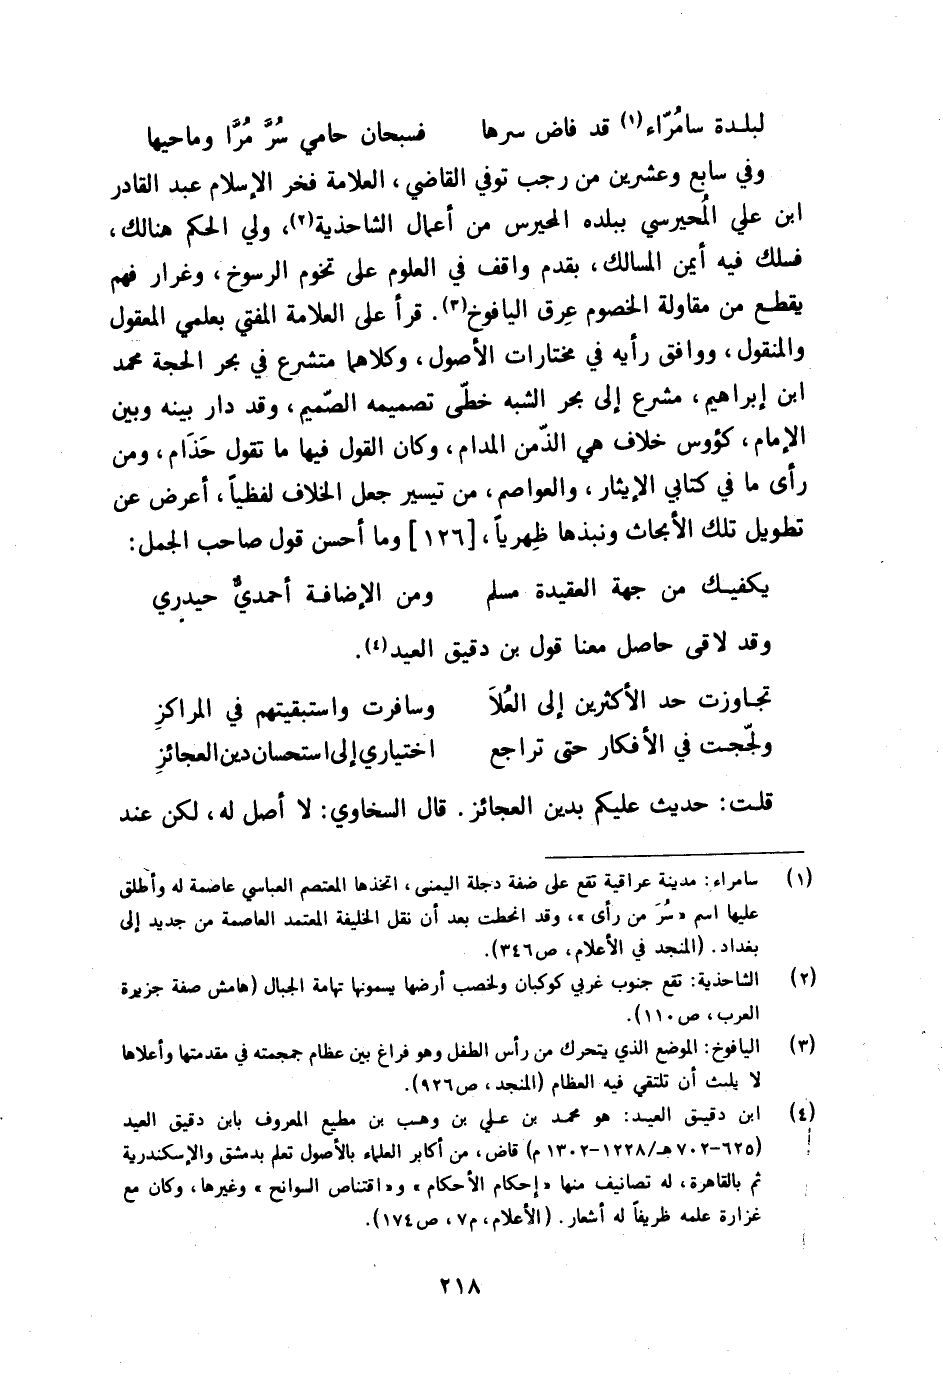 لبلدة سامُرّاء(١) قد فاض سرها فسبحان حامي سُرَّ مُرَّا وماحيها
وفي سابع وعشرين من رجب توفي القاضي، العلامة فخر الإسلام عبد القادر
ابن علي المُحيرسي ببلده المحيرس من أعمال الشاحذية(٢)، ولي الحكم هنالك،
فسلك فيه أيمن المسالك، بقدم واقف في العلوم على تخوم الرسوخ، وغرار فهم
يقطع من مقاولة الخصوم عِرق اليافوخ(٣). قرأ على العلامة المفتي بعلمي المعقول
والمنقول، ووافق رأيه في مختارات الأصول، وكلاهما متشرع في بحر الحجة محمد
ابن إبراهيم، مشرع إلى بحر الشبه خطّي تصميمه الصّميم، وقد دار بينه وبين
الإمام، كؤوس خلاف هي الذّمن المدام، وكان القول فيها ما تقول حَذَام، ومن
رأى ما في كتابي الإيثار، والعواصم، من تيسير جعل الخلاف لفظياً، أعرض عن
تطويل تلك الأبحاث ونبذها ظِهرياً، [١٢٦] وما أحسن قول صاحب الجمل:
يكفيك من جهة العقيدة مسلم ومن الإضافة أحمديٌّ حيدري
وقد لاقى حاصل معنا قول بن دقيق العيد(٤).
تجاوزت حد الأكثرين إلى العُلاَ وسافرت واستبقيتهم في المراكزِ
ولجّجت في الأفكار حتى تراجع اختياري إلى استحسان دين العجائزِ
قلت: حديث عليكم بدين العجائز. قال السخاوي: لا أصل له، لكن عند
(١) سامراء: مدينة عراقية تقع على ضفة دجلة اليمنى، اتخذها المعتصم العباسي عاصمة له وأطلق
عليها اسم «سُرَ من رأى»، وقد انحطت بعد أن نقل الخليفة المعتمد العاصمة من جديد إلى
بغداد. (المنجد في الأعلام، ص٣٤٦).
(٢) الشاحذية: تقع جنوب غربي كوكبان ولخصب أرضها يسمونها تهامة الجبال (هامش صفة جزيرة
العرب، ص١١٠).
(٣) اليافوخ: الموضع الذي يتحرك من رأس الطفل وهو فراغ بين عظام جمجمته في مقدمتها وأعلاها
لا يلبث أن تلتقي فيه العظام (المنجد، ص٩٢٦).
(٤) ابن دقيق العيد: هو محمد بن علي بن وهب بن مطيع المعروف بابن دقيق العيد
(٦٢٥-٧٠٢هـ/١٢٢٨-١٣٠٢م) قاض، من أكابر العلماء بالأصول تعلم بدمشق والإسكندرية
ثم بالقاهرة، له تصانيف منها «إحكام الأحكام» و«اقتناص السوانح» وغيرها، وكان مع
غزارة علمه ظريفاً له أشعار. (الأعلام، م٧، ص١٧٤).
٢١٨